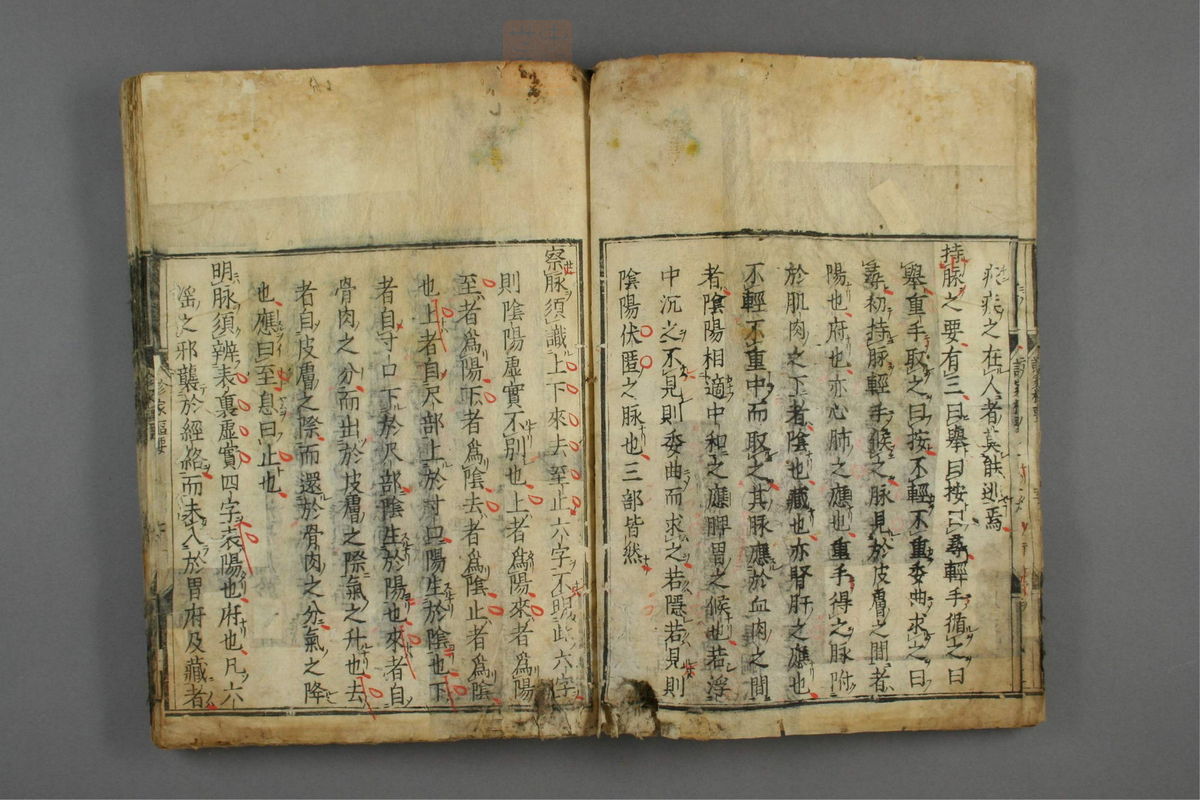 疢疾之在人者莫能逃焉
持脉之要有三曰舉曰按曰尋輕手循之曰
舉重手取之曰按不輕不重委曲求之曰
尋初持脉輕手候之脉見於皮膚之間者
陽也府也亦心肺之應也重手得之脉附
於肌肉之下者陰也藏也亦腎肝之應也
不輕不重中而取之其脉應於血肉之間
者陰陽相適中和之應脾胃之候也若浮
中沉之不見則委曲而求之若隱若見則
陰陽伏匿之脉也三部皆然
察脉須識上下來去至止六字不明此六字
則陰陽虛實不別也上者爲陽來者爲陽
至者爲陽下者爲陰去者爲陰止者爲陰
也上者自尺部上於寸口陽生於陰也下
者自寸口下於尺部陰生於陽也來者自
骨肉之分而出於皮膚之際氣之升也去
者自皮膚之際而還於骨肉之分氣之降
也應曰至息曰止也
明脉須辨表裏虛實四字表陽也府也凡六
淫之邪襲於經絡而未入於胃府及藏者
診家樞要